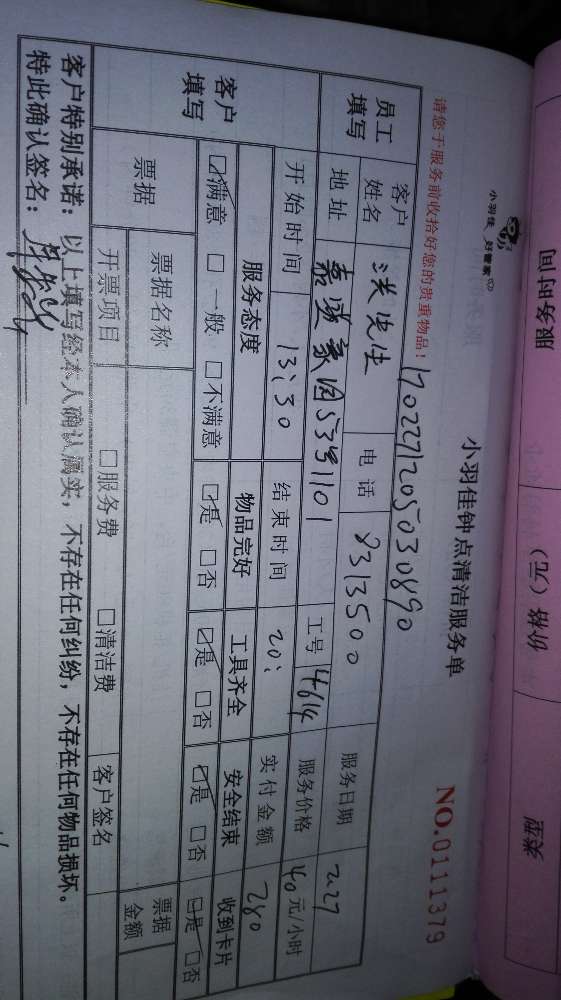 服务时间
价格（元）
类型
小羽佳 好管家
小羽佳钟点清洁服务单
NO.0111379
请您于服务前收拾好您的贵重物品！
1702271205030890
员工填写
客户姓名 洪先生 电话 8313500 服务日期 2.27
地址 嘉盛豪园53号1101 工号 4614 服务价格 40元/小时
客户填写
开始时间 13:30 结束时间 20: 实付金额 280
服务态度 物品完好 工具齐全 安全结束 收到卡片
☑满意 □一般 □不满意 ☑是 □否 ☑是 □否 ☑是 □否 ☑是 □否
票据 票据名称 □服务费 □清洁费 票据金额
开票项目 客户签名
客户特别承诺：以上填写经本人确认属实，不存在任何纠纷，不存在任何物品损坏。
特此确认签名：